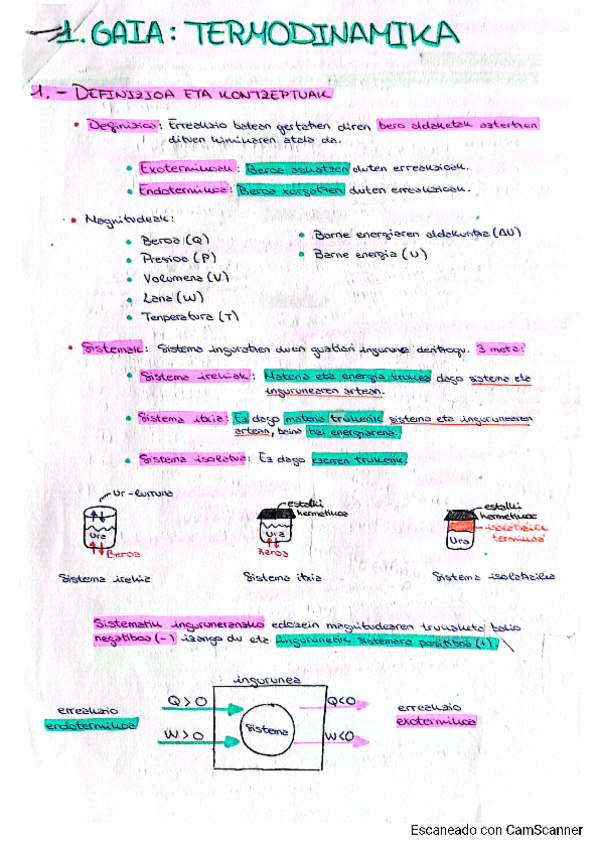 →1. GAIA: TERMODINAMIKA
1. - DEFINIZIOA ETA KONTZEPTUAK
• Definizioa: Erreakzio batean gertatzen diren bero aldaketak aztertzen
dituen kimikaren atala da.
• Exotermikoak: Beroa askatzen duten erreakzioak.
• Endotermikoa: Beroa xurgatzen duten erreakzioak.
• Magnitudeak:
• Beroa (Q)
• Presioa (P)
• Volumena (V)
• Lana (W)
• Tenperatura (T)
• Barne energiaren aldakuntza (ΔU)
• Barne energia (U)
• Sistemak: Sistema inguratzen duen guztiari ingurunea deritzogu. 3 mota:
• Sistema irekiak: Materia eta energia trukea dago sistema eta
ingurunearen artean.
• Sistema itxia: Ez dago materia trukerik sistema eta ingurunearen
artean, baina bai energiarena.
• Sistema isolatua: Ez dago ezerren trukerik.
Ur-lurruna
Ura
Beroa
Sistema irekia
estalki
hermetikoa
Ura
Beroa
Sistema itxia
estalki
hermetikoa
isolatzaile
termikoa
Ura
Sistema isolatzailea
Sistematik inguruneranako edozein magnitudearen trukaketa balio
negatiboa (-) izango du eta ingurunetik sistemara positiboa (+).
ingurunea
erreakzio
endotermikoa
Q>0
W>0
Sistema
Q<0
W<0
erreakzio
exotermikoa
Escaneado con CamScanner